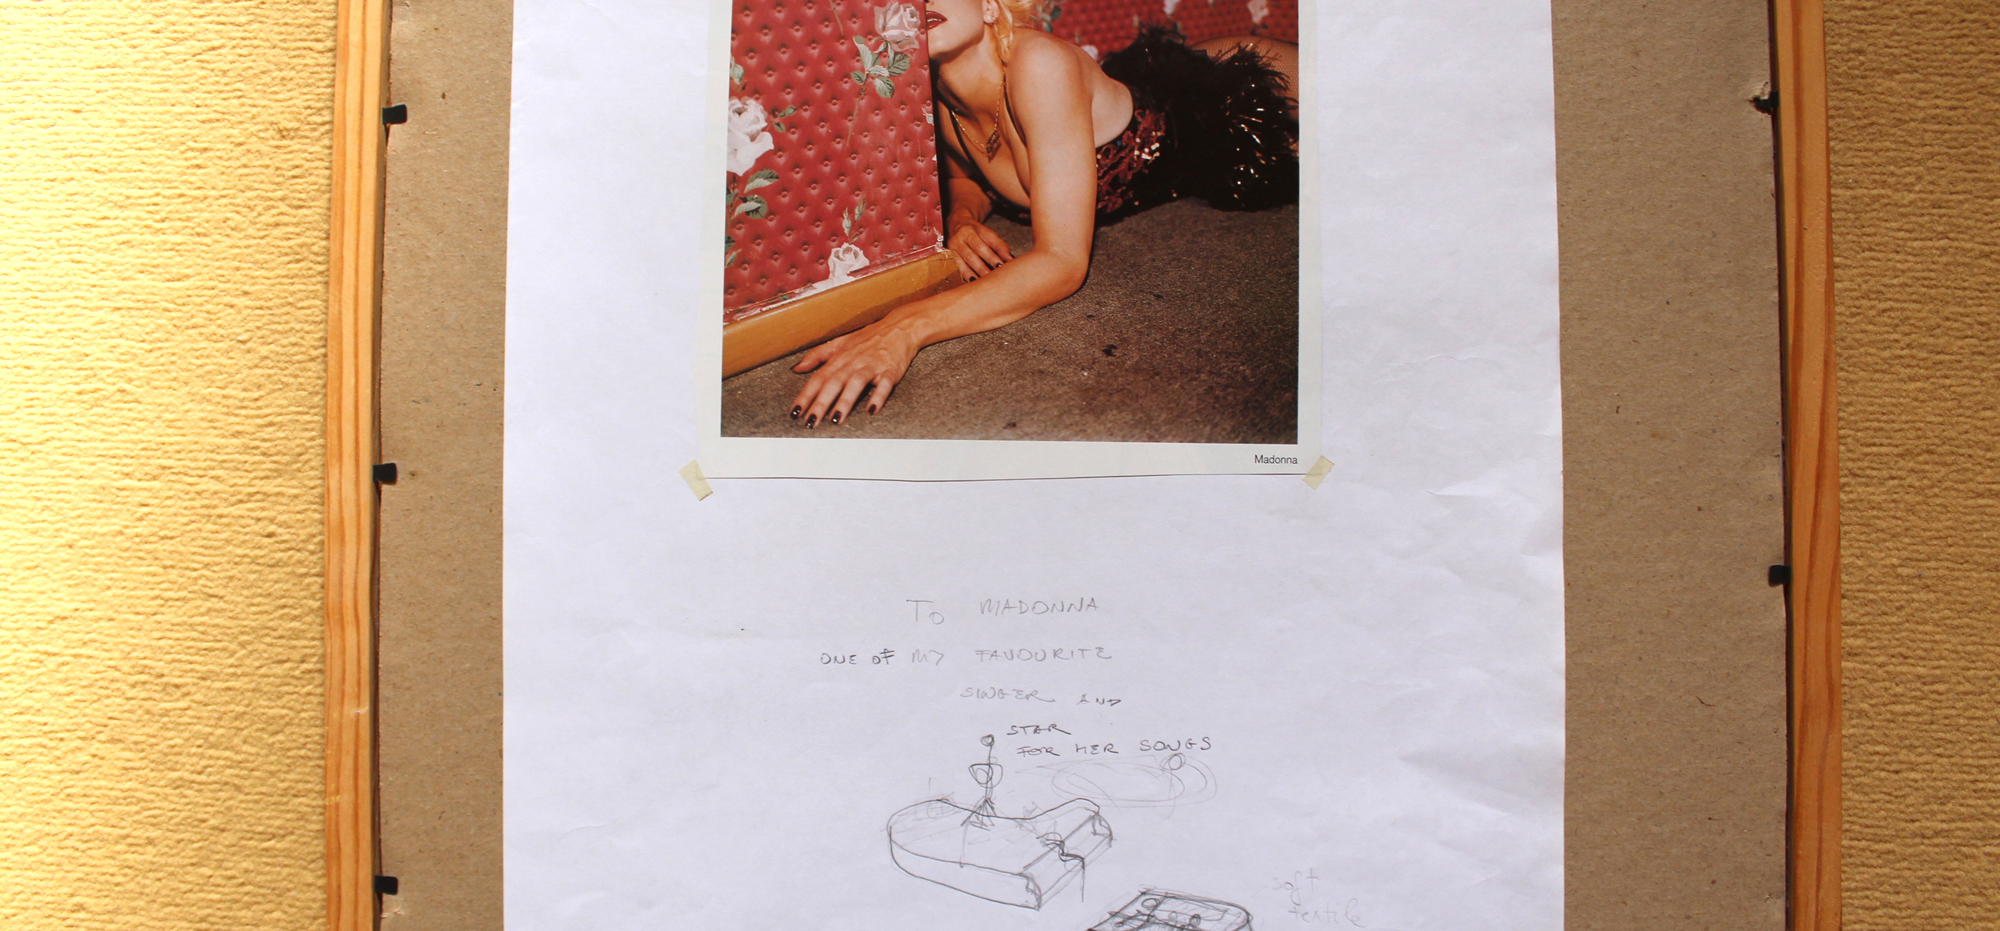 Madonna
TO MADONNA
ONE OF MY FAVOURITE
SINGER AND
STAR
FOR HER SONGS
soft
textile